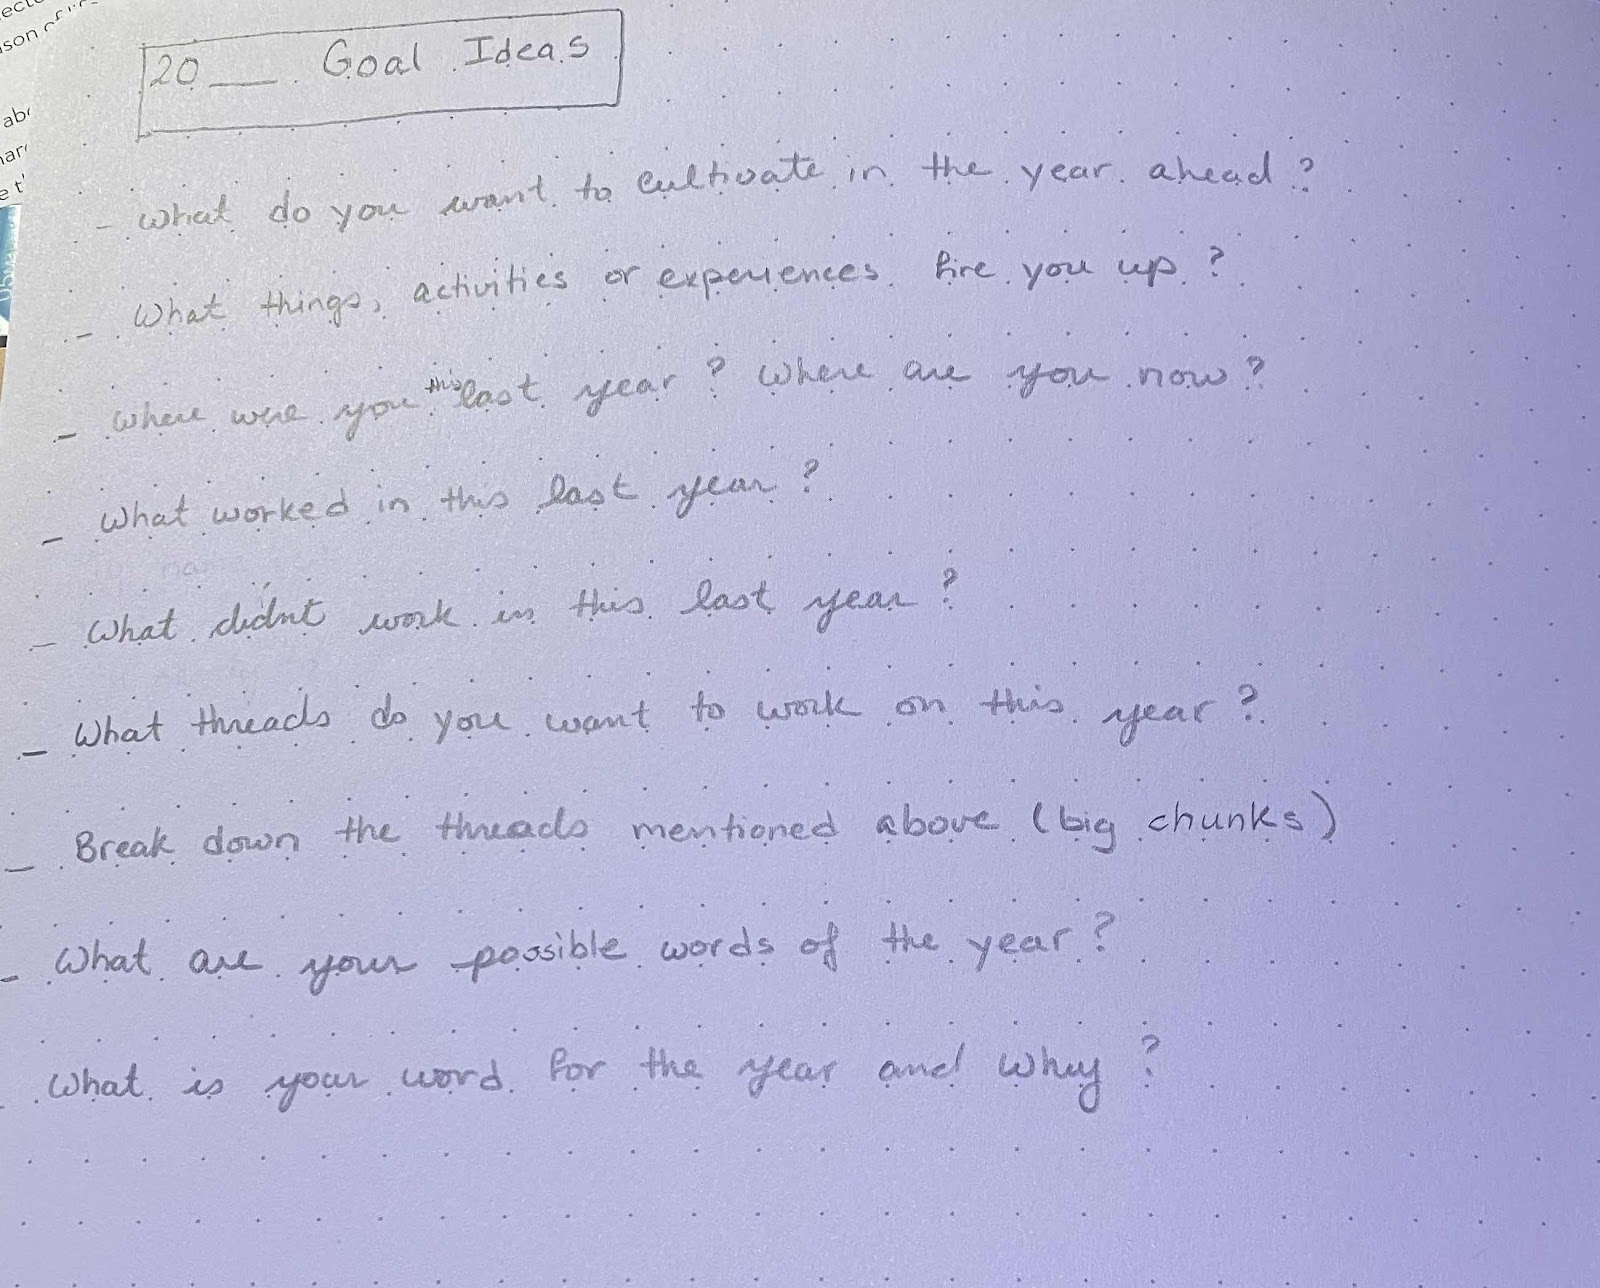 20___ Goal Ideas
- What do you want to cultivate in the year ahead?
- What things, activities or experiences fire you up?
- Where were you this last year? Where are you now?
- What worked in this last year?
- What didnt work in this last year?
- What threads do you want to work on this year?
- Break down the threads mentioned above (big chunks)
- What are your possible words of the year?
- What is your word for the year and why?